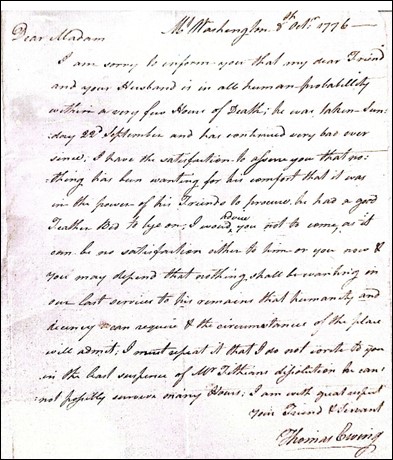 Mt Washington 8th Octr 1776
Dear Madam
I am sorry to inform you that my dear Friend
and your Husband is in all human probability
within a very few Hours of Death; he was taken Sun-
day 22d September and has continued very bad ever
since, I have the satisfaction to assure you that no-
thing has been wanting for his comfort that it was
in the power of his Friends to procure, he had a good
Feather Bed to lye on; I woud advise you not to come, as it
can be no satisfaction either to him or you now &
you may depend that nothing shall be wanting in
our last services to his remains that humanity and
decency can require & the circumstances of the place
will admit; I must repeat it that I do not write to you
in the least suspence of Mr Tilthians dissolution he can-
not possibly survive many Hours; I am with great respect
Your Friend & Servant
Thomas Ewing